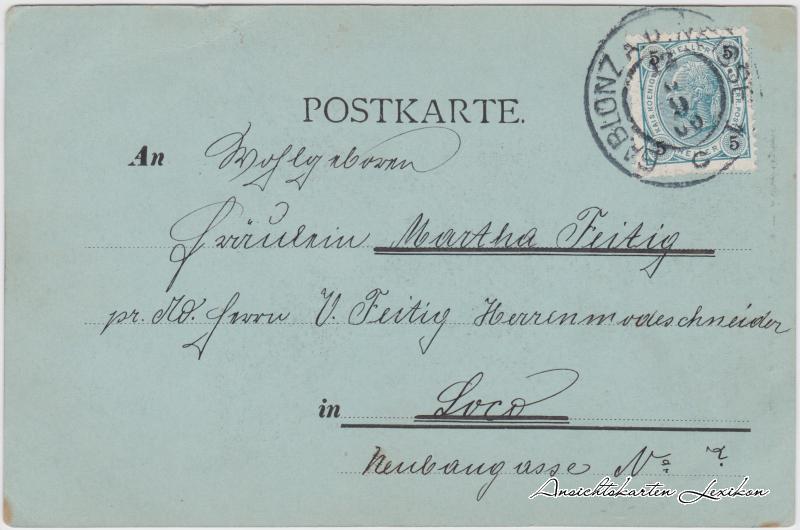 POSTKARTE.
An Wohlgeboren
Fräulein Martha Feitig
pr. Ad. Herrn V. Feitig Herrenmodeschneider
in Loco
Neubaugasse
GABLONZ A.D.
5 HELLER 5
KAIS. KOENIGL.
5 HELLER 5
Ansichtskarten Lexikon